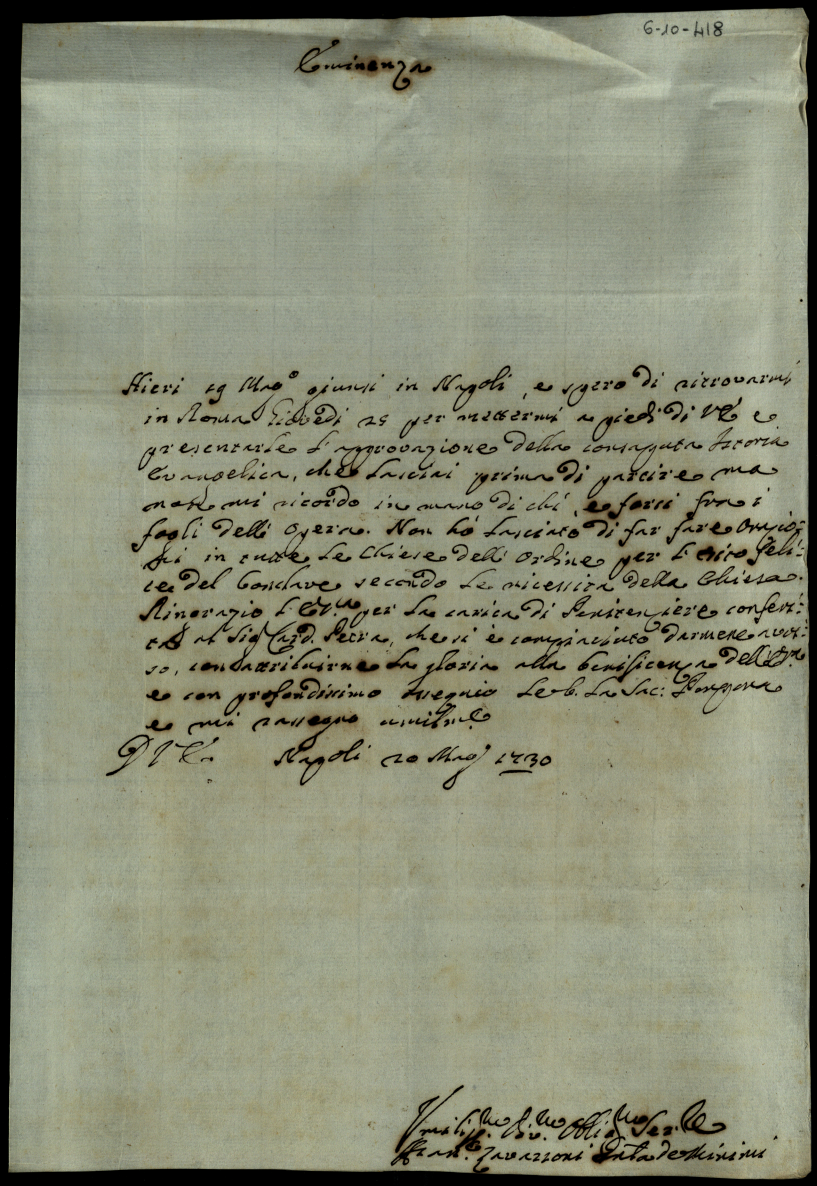 6-10-418
Eminenza
Hieri 19 Magº giunsi in Napoli, e spero di ritrovarmi
in Roma Giovedi 25 per mettermi a piedi di VE e
presentarle l'approvazione della consaputa Istoria
Evangelica, che lasciai prima di partire ma
non mi ricordo in mano di chi, e forsi fra i
fogli dell'Opera. Non hò lasciato di far fare Orazio:
ni in tutte le Chiese dell'Ordine per l'esito feli:
ce del Conclave secondo le nicessità della Chiesa.
Ringrazio l'E.V.ra per la carica di Penitenziere conferi:
ta al Sig. Card. Petra, che si è compiaciuto darmene avvi:
so, con attribuirne la gloria alla benificenza dell'E.V.ra
e con profondissimo ossequio le b. la Sac: Porpora
e mi rassegno umilme
D V E. Napoli 20 Mag 1730
Umiliss.mo Div.mo Obblig.mo Ser.re
Fran.co Zavarroni de Minimi